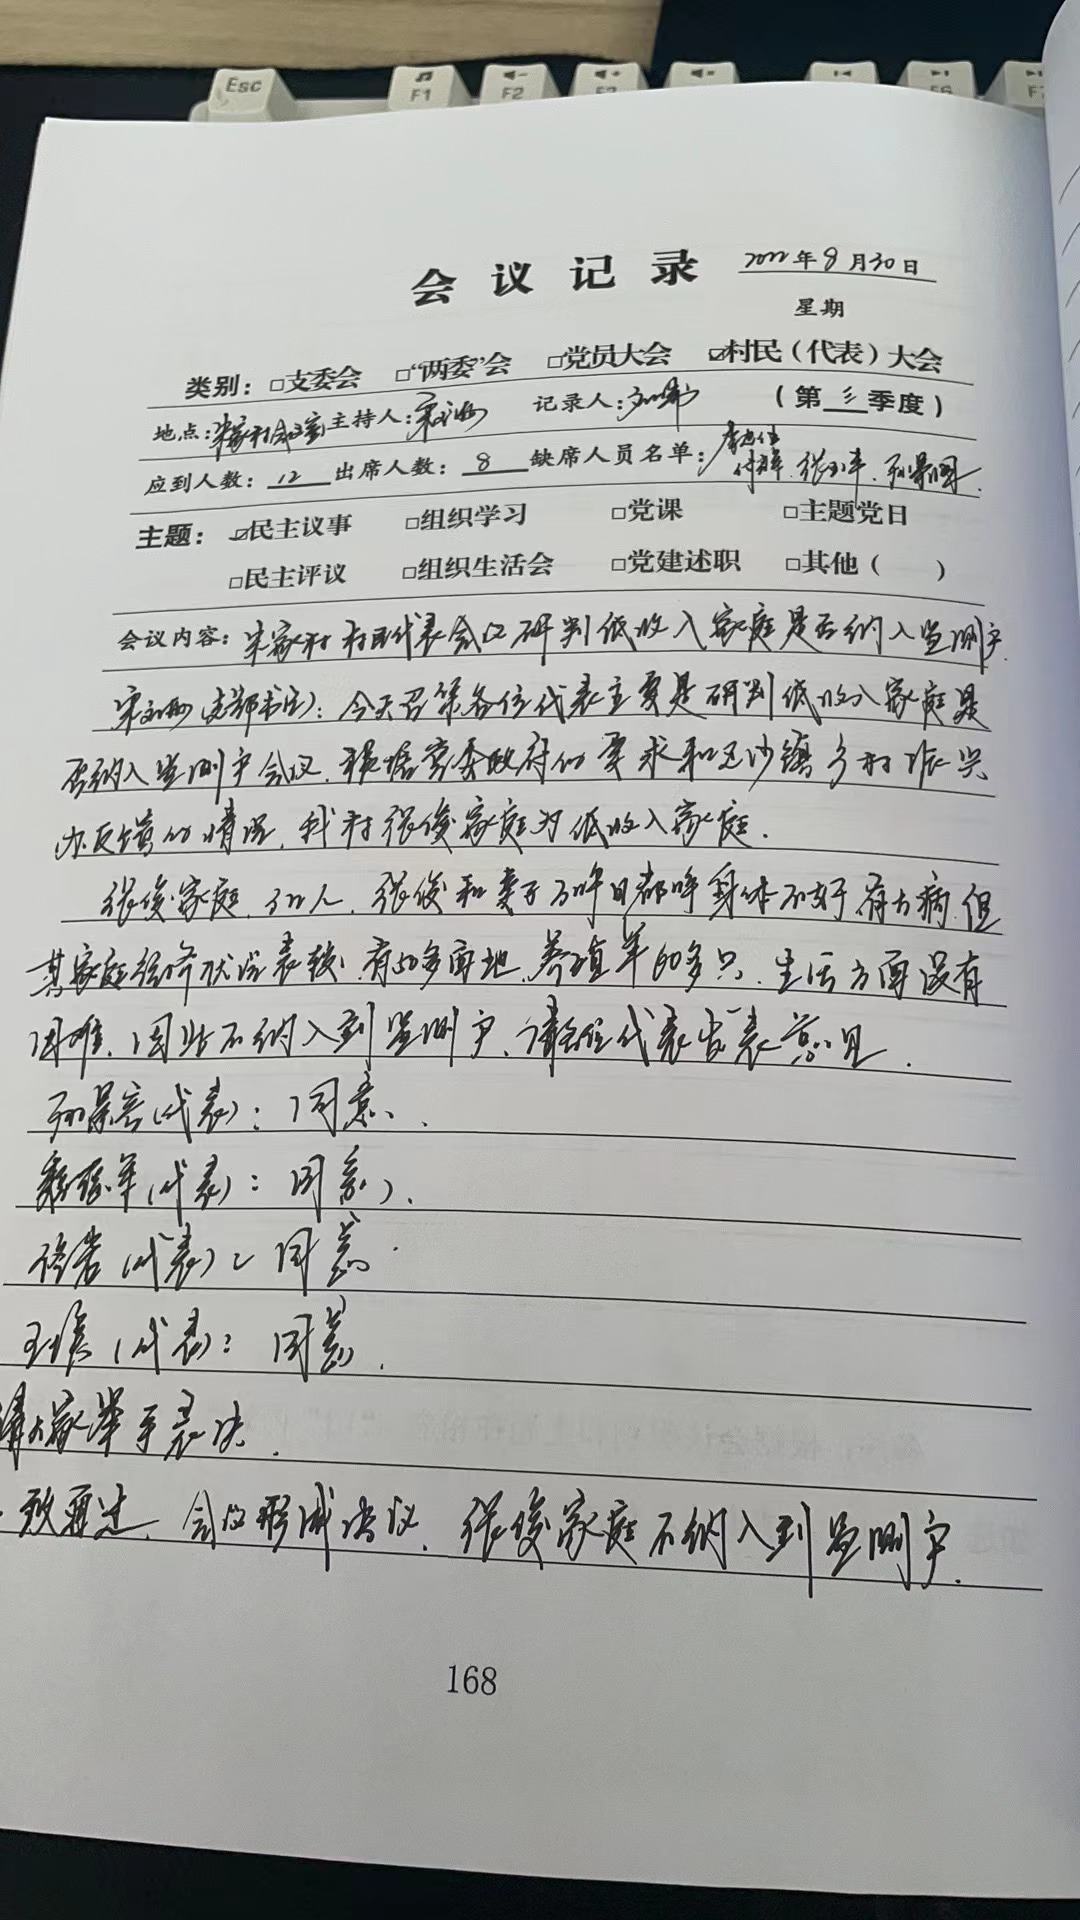 Esc F1 F2 F3 F6 F7
会议记录 2022年8月30日
星期
类别：□支委会 □“两委”会 □党员大会 ☑村民（代表）大会
地点：宋家村会议室 主持人： 记录人： （第三季度）
应到人数：12 出席人数：8 缺席人员名单：
主题：☑民主议事 □组织学习 □党课 □主题党日
□民主评议 □组织生活会 □党建述职 □其他（ ）
会议内容：宋家村村民代表会议研判低收入家庭是否纳入监测户.
(支部书记)：今天召集各位代表主要是研判低收入家庭是
否纳入监测户会议，根据党委政府的要求和镇乡村振兴
办反馈的情况，我村张俊家庭为低收入家庭.
张俊家庭，人，张俊和妻子身体不好有大病，但
其家庭经济状况，有50多亩地，养殖羊60多只，生活方面没有
困难，因此不纳入到监测户，请各位代表发表意见.
(代表)：同意.
(代表)：同意.
(代表)：同意.
(代表)：同意.
请大家举手表决.
一致通过，会议形成决议，张俊家庭不纳入到监测户.
168